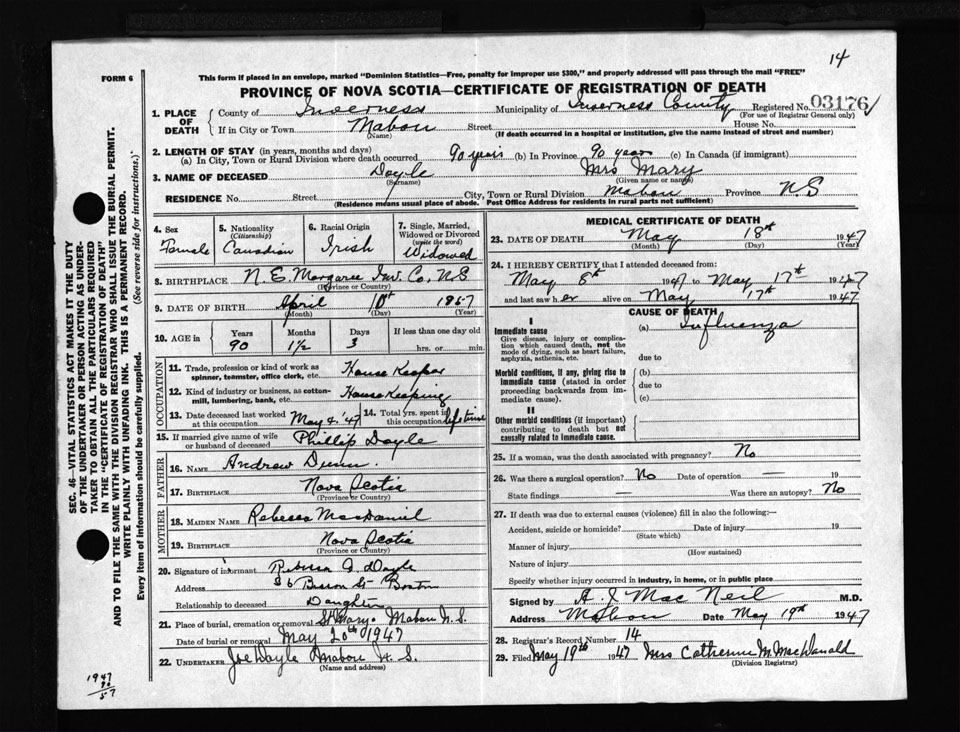 14
FORM 6
This form if placed in an envelope, marked "Dominion Statistics—Free, penalty for improper use $300," and properly addressed will pass through the mail "FREE"
PROVINCE OF NOVA SCOTIA—CERTIFICATE OF REGISTRATION OF DEATH
1. PLACE OF DEATH County of Inverness Municipality of Inverness County Registered No. 03176
(For use of Registrar General only)
If in City or Town Mabou Street House No.
(Name) (If death occurred in a hospital or institution, give the name instead of street and number)
2. LENGTH OF STAY (in years, months and days)
(a) In City, Town or Rural Division where death occurred 90 years (b) In Province 90 years (c) In Canada (if immigrant)
3. NAME OF DECEASED Doyle Mrs Mary
(Surname) (Given name or names)
RESIDENCE No. Street City, Town or Rural Division Mabou Province N.S
(Residence means usual place of abode. Post Office Address for residents in rural parts not sufficient)
4. Sex Female
5. Nationality (Citizenship) Canadian
6. Racial Origin Irish
7. Single, Married, Widowed or Divorced (write the word) Widowed
8. BIRTHPLACE N. E. Margaree Inv. Co, N S
(Province or Country)
9. DATE OF BIRTH April 10th 1857
(Month) (Day) (Year)
10. AGE in Years 90 Months 1½ Days 3 If less than one day old hrs. or min.
OCCUPATION
11. Trade, profession or kind of work as spinner, teamster, office clerk, etc. House Keeper
12. Kind of industry or business, as cotton-mill, lumbering, bank, etc. House Keeping
13. Date deceased last worked at this occupation May 4, '47 14. Total yrs. spent in this occupation life time
15. If married give name of wife or husband of deceased Phillip Doyle
FATHER
16. NAME Andrew Dunn
17. BIRTHPLACE Nova Scotia
(Province or Country)
MOTHER
18. MAIDEN NAME Rebecca MacDaniel
19. BIRTHPLACE Nova Scotia
(Province or Country)
20. Signature of informant Rebecca J. Doyle
Address St Boston
Relationship to deceased Daughter
21. Place of burial, cremation or removal St Marys Mabou N. S.
Date of burial or removal May 20th 1947
22. UNDERTAKER Joe Doyle Mabou N. S.
(Name and address)
MEDICAL CERTIFICATE OF DEATH
23. DATE OF DEATH May 18th 1947
(Month) (Day) (Year)
24. I HEREBY CERTIFY that I attended deceased from:
May 8th 1947 to May 17th 1947
and last saw her alive on May 17th 1947
CAUSE OF DEATH
I
Immediate cause (a) Influenza
Give disease, injury or complication which caused death, not the mode of dying, such as heart failure, asphyxia, asthenia, etc.
due to
Morbid conditions, if any, giving rise to immediate cause (stated in order proceeding backwards from immediate cause).
(b)
due to
(c)
II
Other morbid conditions (if important) contributing to death but not causally related to immediate cause.
25. If a woman, was the death associated with pregnancy? No
26. Was there a surgical operation? No Date of operation — 19
State findings — Was there an autopsy? No
27. If death was due to external causes (violence) fill in also the following:—
Accident, suicide or homicide? Date of injury 19
(State which)
Manner of injury
(How sustained)
Nature of injury
Specify whether injury occurred in industry, in home, or in public place
Signed by A. J. Mac Neil M.D.
Address Mabou Date May 19th 1947
28. Registrar's Record Number 14
29. Filed May 19th 1947 Mrs Catherine M. MacDonald
(Division Registrar)
SEC. 46—VITAL STATISTICS ACT MAKES IT THE DUTY
OF THE UNDERTAKER OR PERSON ACTING AS UNDERTAKER TO OBTAIN ALL THE PARTICULARS REQUIRED
IN THE "CERTIFICATE OF REGISTRATION OF DEATH"
AND TO FILE THE SAME WITH THE DIVISION REGISTRAR WHO SHALL ISSUE THE BURIAL PERMIT.
WRITE PLAINLY WITH UNFADING INK. THIS IS A PERMANENT RECORD.
Every item of information should be carefully supplied. (See reverse side for instructions.)
1947
90
57